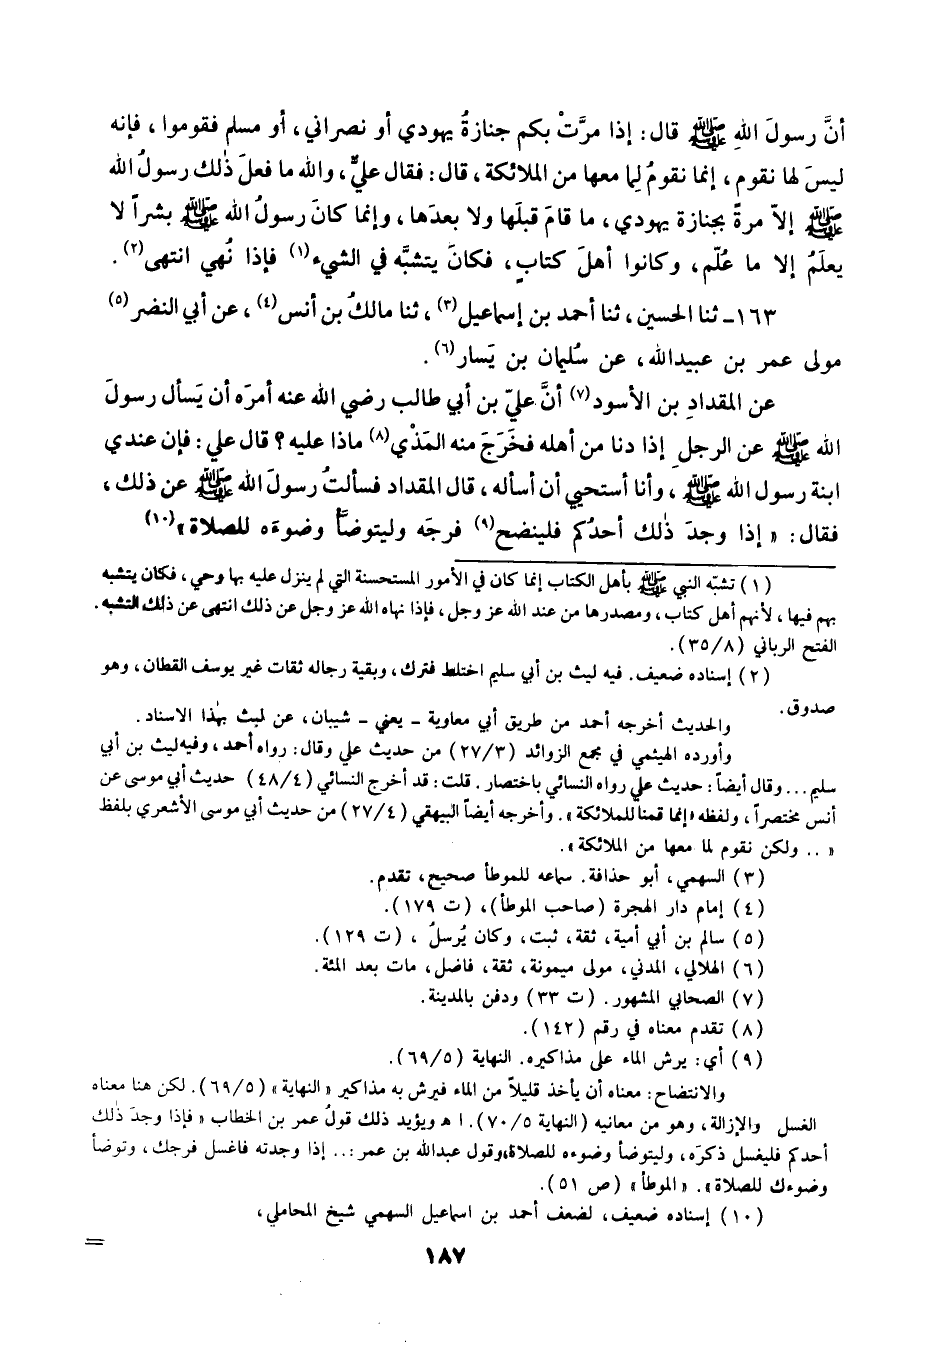 أنَّ رسولَ اللهِ ﷺ قال: إذا مرَّتْ بكم جنازةُ يهودي أو نصراني، أو مسلم فقوموا، فإنه
ليسَ لها نقوم، إنما نقومُ لِما معها من الملائكة، قال: فقال عليٌّ، والله ما فعلَ ذٰلك رسولُ الله
ﷺ إلاّ مرةً بجنازة يهودي، ما قامَ قبلَها ولا بعدَها، وإنما كانَ رسولُ الله ﷺ بشراً لا
يعلَمُ إلا ما عُلّم، وكانوا أهلَ كتابٍ، فكانَ يتشبَّه في الشيء(١) فإذا نُهي انتهى(٢).
١٦٣- ثنا الحسين، ثنا أحمد بن إسماعيل(٣)، ثنا مالكُ بن أنس(٤)، عن أبي النضر(٥)
مولى عمر بن عبيدالله، عن سُليمان بن يَسار(٦).
عن المقدادِ بن الأسود(٧) أنَّ عليّ بن أبي طالب رضي الله عنه أمرَه أن يَسأل رسولَ
الله ﷺ عن الرجلِ إذا دنا من أهله فخَرَجَ منه المَذْي(٨) ماذا عليه؟ قال علي: فإن عندي
ابنة رسول الله ﷺ، وأنا أستحيي أن أسأله، قال المقداد فسألتُ رسولَ الله ﷺ عن ذلك،
فقال: « إذا وجدَ ذٰلك أحدُكم فلينضح(٩) فرجَه وليتوضَّأ وضوءَه للصلاة»(١٠)
(١) تشبّه النبي ﷺ بأهل الكتاب إنما كان في الأمور المستحسنة التي لم ينزل عليه بها وحي، فكان يتشبه
بهم فيها، لأنهم أهل كتاب، ومصدرها من عند الله عز وجل، فإذا نهاه الله عز وجل عن ذلك انتهى عن ذلك التشبه.
الفتح الرباني (٣٥/٨).
(٢) إسناده ضعيف. فيه ليث بن أبي سليم اختلط فترك، وبقية رجاله ثقات غير يوسف القطان، وهو
صدوق.
والحديث أخرجه أحمد من طريق أبي معاوية - يعني - شيبان، عن ليث بهٰذا الاسناد.
وأورده الهيثمي في مجمع الزوائد (٢٧/٣) من حديث علي وقال: رواه أحمد، وفيه ليث بن أبي
سليم... وقال أيضاً: حديث علي رواه النسائي باختصار. قلت: قد أخرج النسائي (٤٨/٤) حديث أبي موسى عن
أنس مختصراً، ولفظه «إنما قمنا للملائكة». وأخرجه أيضاً البيهقي (٢٧/٤) من حديث أبي موسى الأشعري بلفظ
« .. ولكن نقوم لما معها من الملائكة».
(٣) السهمي، أبو حذافة. سماعه للموطأ صحيح، تقدم.
(٤) إمام دار الهجرة (صاحب الموطأ)، (ت ١٧٩).
(٥) سالم بن أبي أمية، ثقة، ثبت، وكان يُرسلُ، (ت ١٢٩).
(٦) الهلالي، المدني، مولى ميمونة، ثقة، فاضل، مات بعد المئة.
(٧) الصحابي المشهور. (ت ٣٣) ودفن بالمدينة.
(٨) تقدم معناه في رقم (١٤٢).
(٩) أي: يرش الماء على مذاكيره. النهاية (٦٩/٥).
والانتضاح: معناه أن يأخذ قليلاً من الماء فيرش به مذاكير «النهاية» (٦٩/٥). لكن هنا معناه
الغسل والإزالة، وهو من معانيه (النهاية ٧٠/٥). ا هـ ويؤيد ذلك قولُ عمر بن الخطاب «فإذا وجدَ ذٰلك
أحدكم فليغسل ذكرَه، وليتوضأ وضوءه للصلاة»، وقول عبدالله بن عمر:.. إذا وجدته فاغسل فرجك، وتوضأ
وضوءك للصلاة». «الموطأ» (ص ٥١).
(١٠) إسناده ضعيف، لضعف أحمد بن اسماعيل السهمي شيخ المحاملي،
=
١٨٧